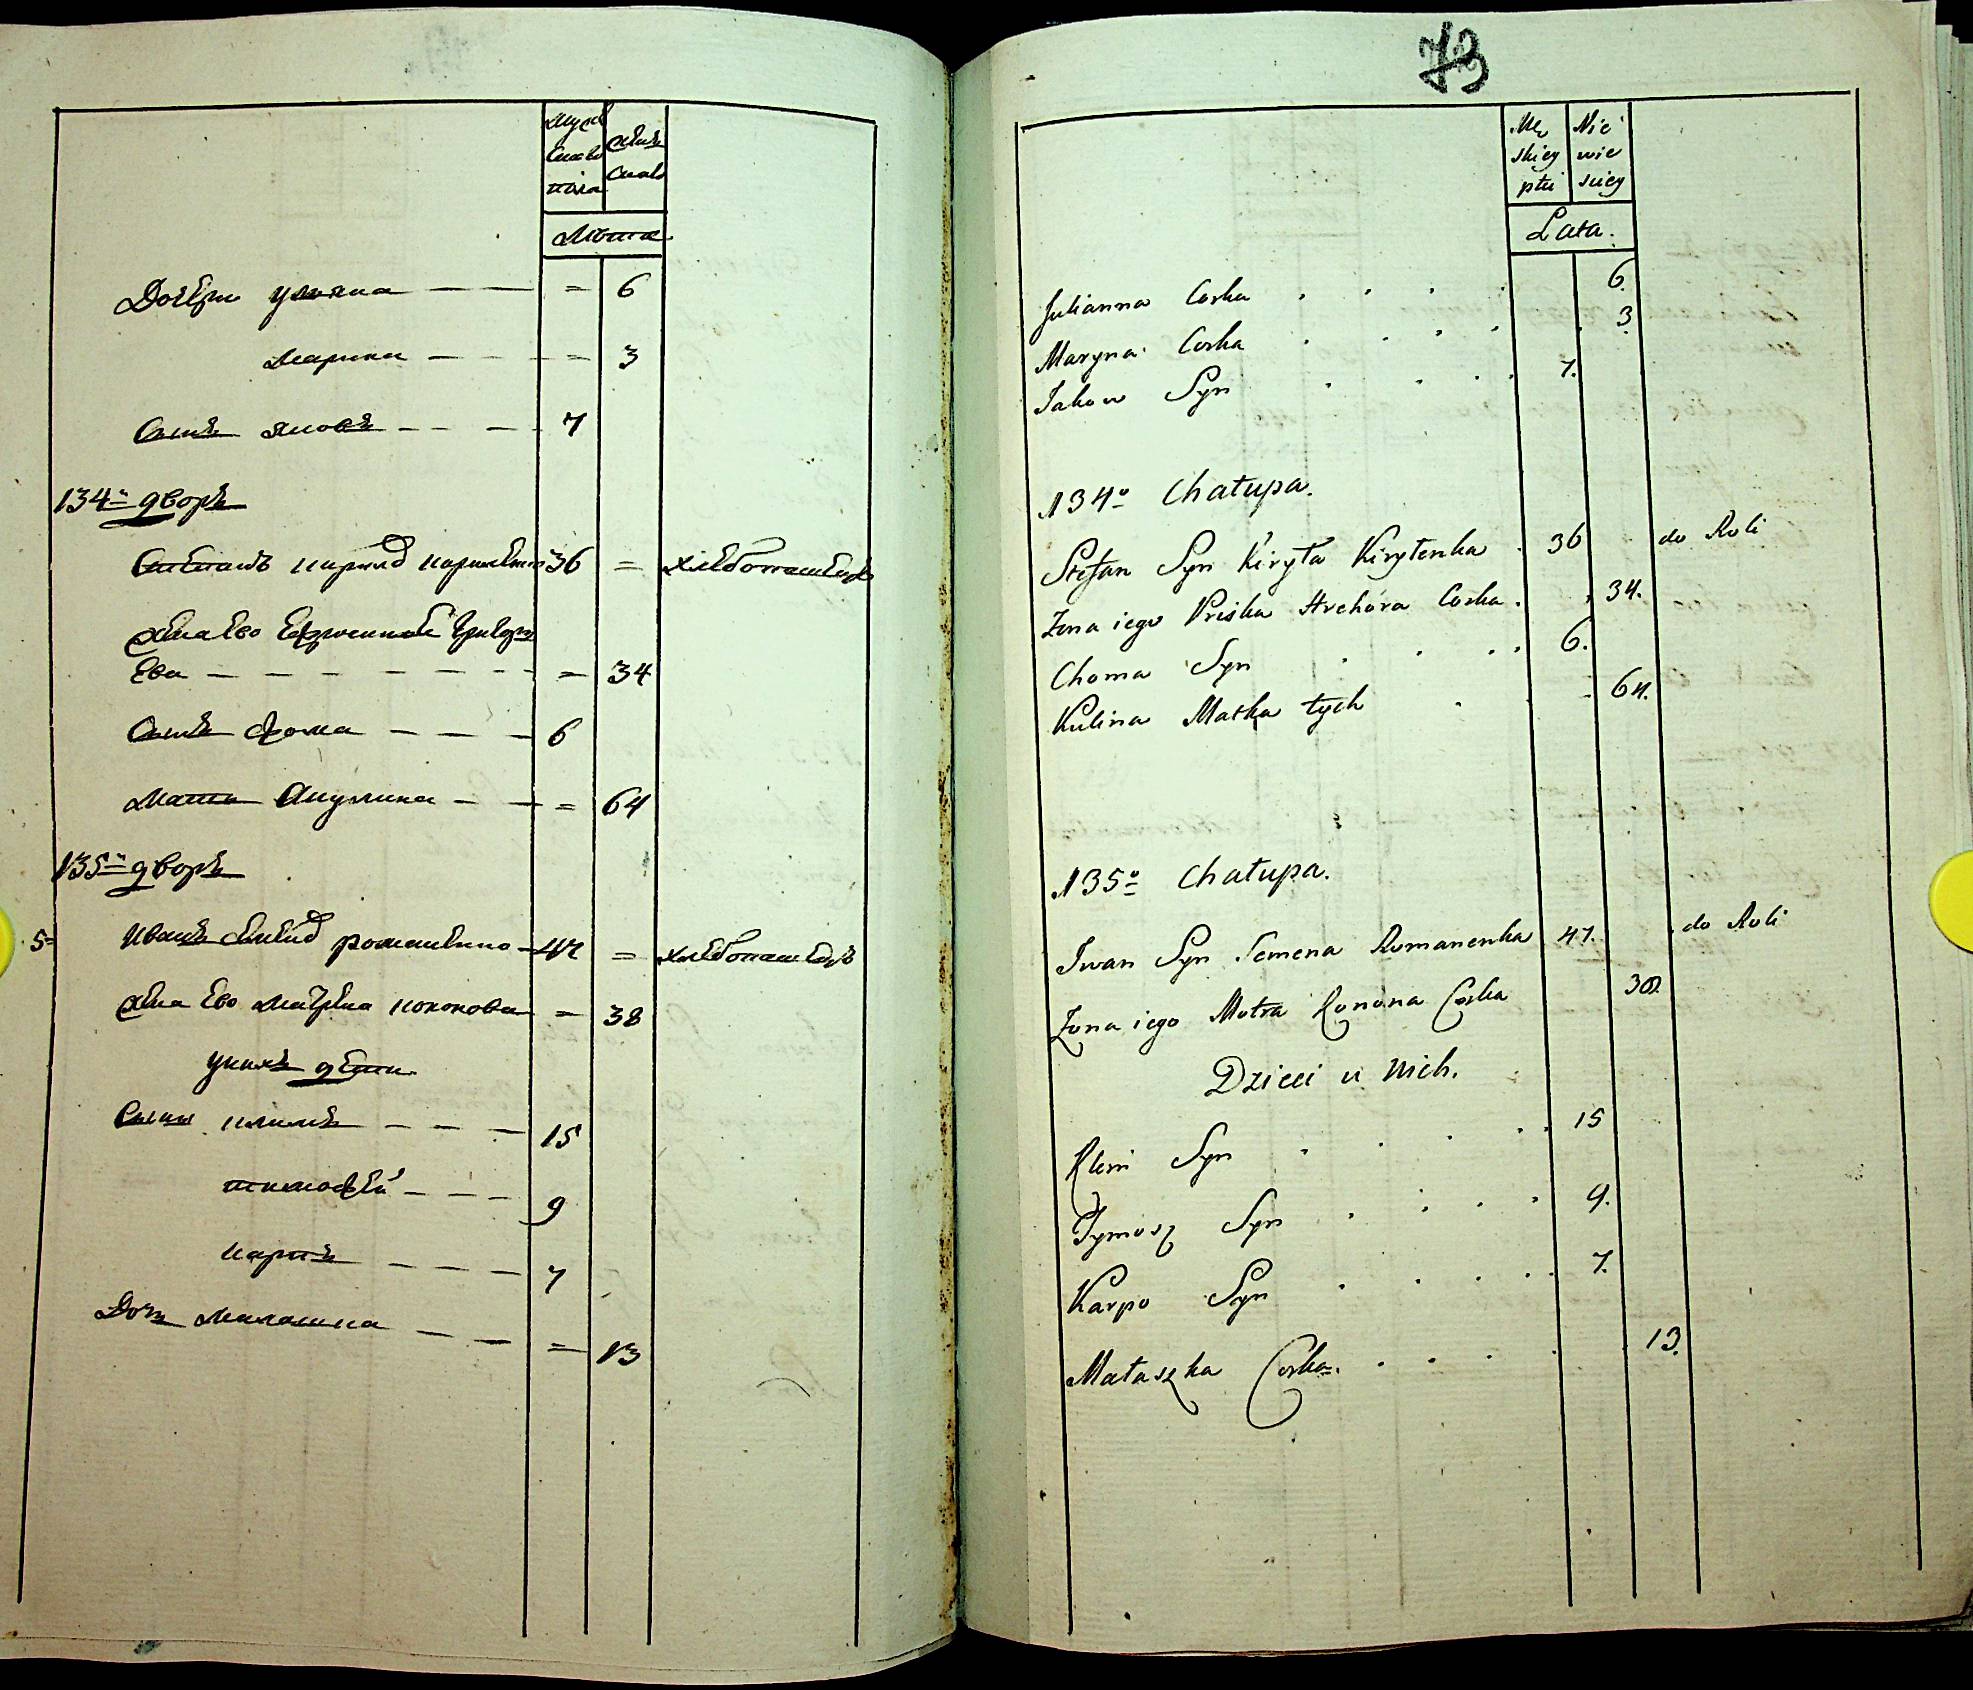 муж
скаго
пола
жен
скаго
Лѣта
Дочери Уляна — — = 6
Марина — — = 3
Сынъ Яковъ — — 7
134й дворъ
Степанъ Кирилов Кириленко 36 = хлебопашецъ
Жена Ево Ефросинья Григорь
Ева — — — = 34
Сынъ Фома — — — 6
Мать Акулина — — = 64
135й дворъ
5 Иванъ Романенко — 47 = хлебопашецъ
Жена Ево Матрена Кононова = 38
у нихъ дети
Сыны Климъ — — — 15
Тимофей — — — 9
Карпъ — — — 7
Дочь Малашка — — = 13
73
Mę
skiey
płci
Nie
wie
sciey
Lata.
Julianna Corka . . . . 6.
Maryna Corka . . . . 3.
Jakow Syn . . . . 7.
134o Chałupa.
Stefan Syn Kiryła Kiryłenka . 36 do Roli
Zona iego Priska Hrehora Corka . 34.
Choma Syn . . . . 6.
Kulina Matka tych . . 64.
135o Chałupa.
Iwan Syn Semena Romanenka 47. do Roli
Zona iego Motra Konona Corka 38.
Dzieci u nich.
Klem Syn . . . . 15
Tymosz Syn . . . . 9.
Karpo Syn . . . . 7.
Małaszka Corka. . . . . 13.